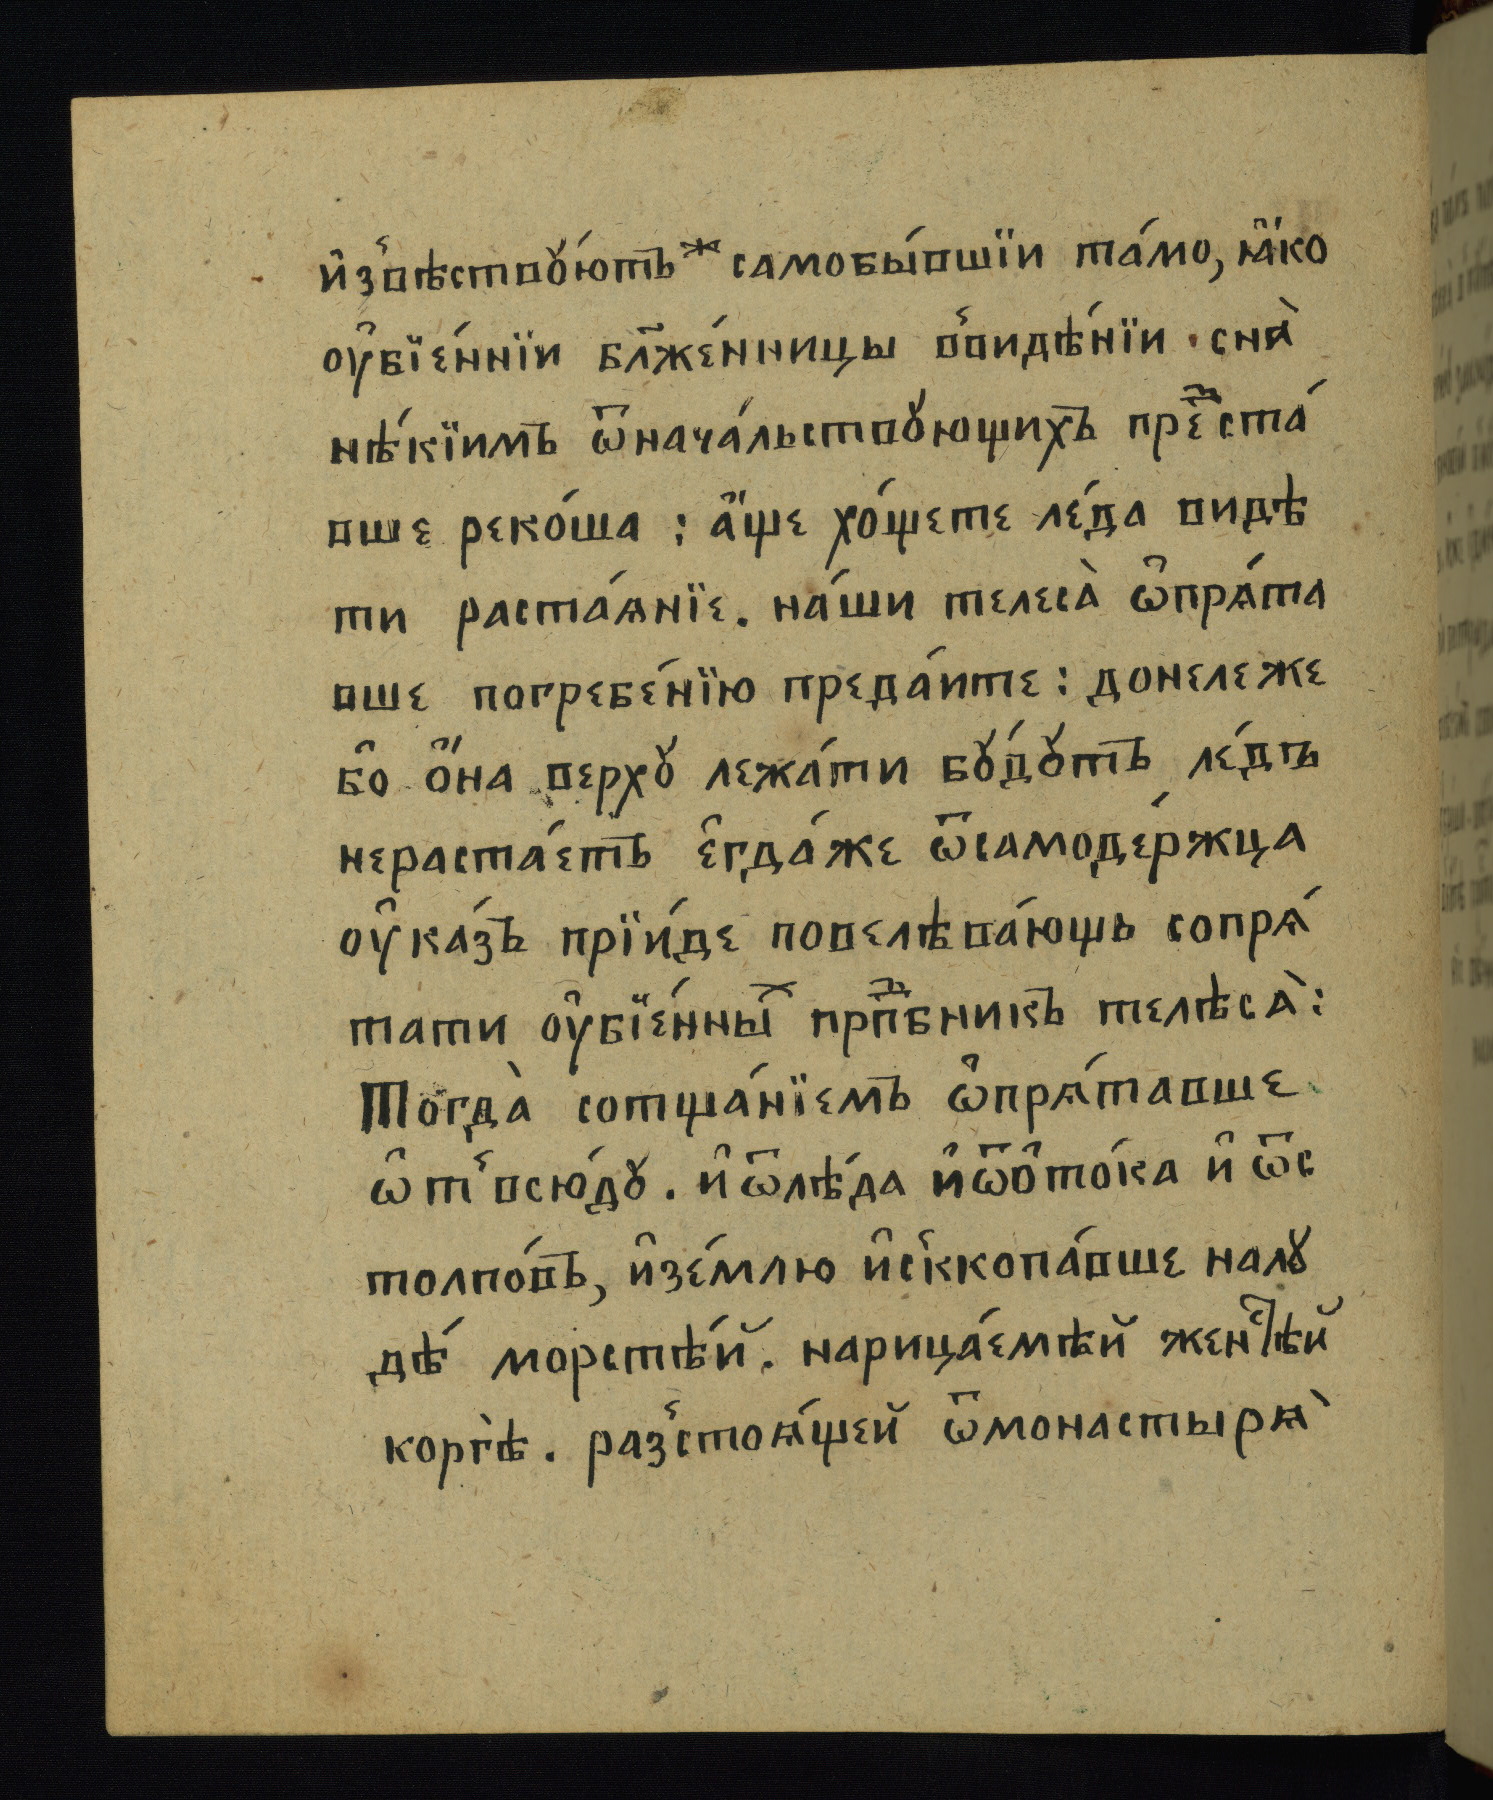 и҆звѣствꙋ́ютъ ж самобы́вшїи та́мо, ꙗ҆́ко
ᲂу҆бїе́ннїи бл҃же́нницы в̾видѣ́нїи снѧ̀
нѣ́кїимъ ѿнача́льствꙋющихъ пред̾ста́
вше реко́ша ; а҆́ще хо́щете ле́да видѣ
ти раста́ѧнїе. на́ши телеса̀ ѡ҆прѧ́та
вше погребе́нїю преда́ите : донележе
бо ѻ҆́на верхꙋ лежа́ти бꙋ́дꙋтъ ле́дъ
нераста́етъ є҆гда́же ѿсамоде́ржца
ᲂу҆ка́зъ прїи́де повелѣва́ющь сопрѧ́
тати ᲂу҆бїе́нныⷯ прпⷣбникъ телѣса̀ :
Тогда̀ сотща́нїемъ ѡ҆прѧ́тавше
ѡ҆т̾всю́дꙋ. и҆ѿлѣ́да и҆ѿѻ҆то́ка и҆ ѿс
толпо́въ, и҆зе́млю и҆с̾ккопа́вше налꙋ
дѣ́ морстѣ́й. нарица́емѣй женⷭ҇тѣй
коргѣ̀. раз̾стоѧ́щей ѿмонастырѧ̀